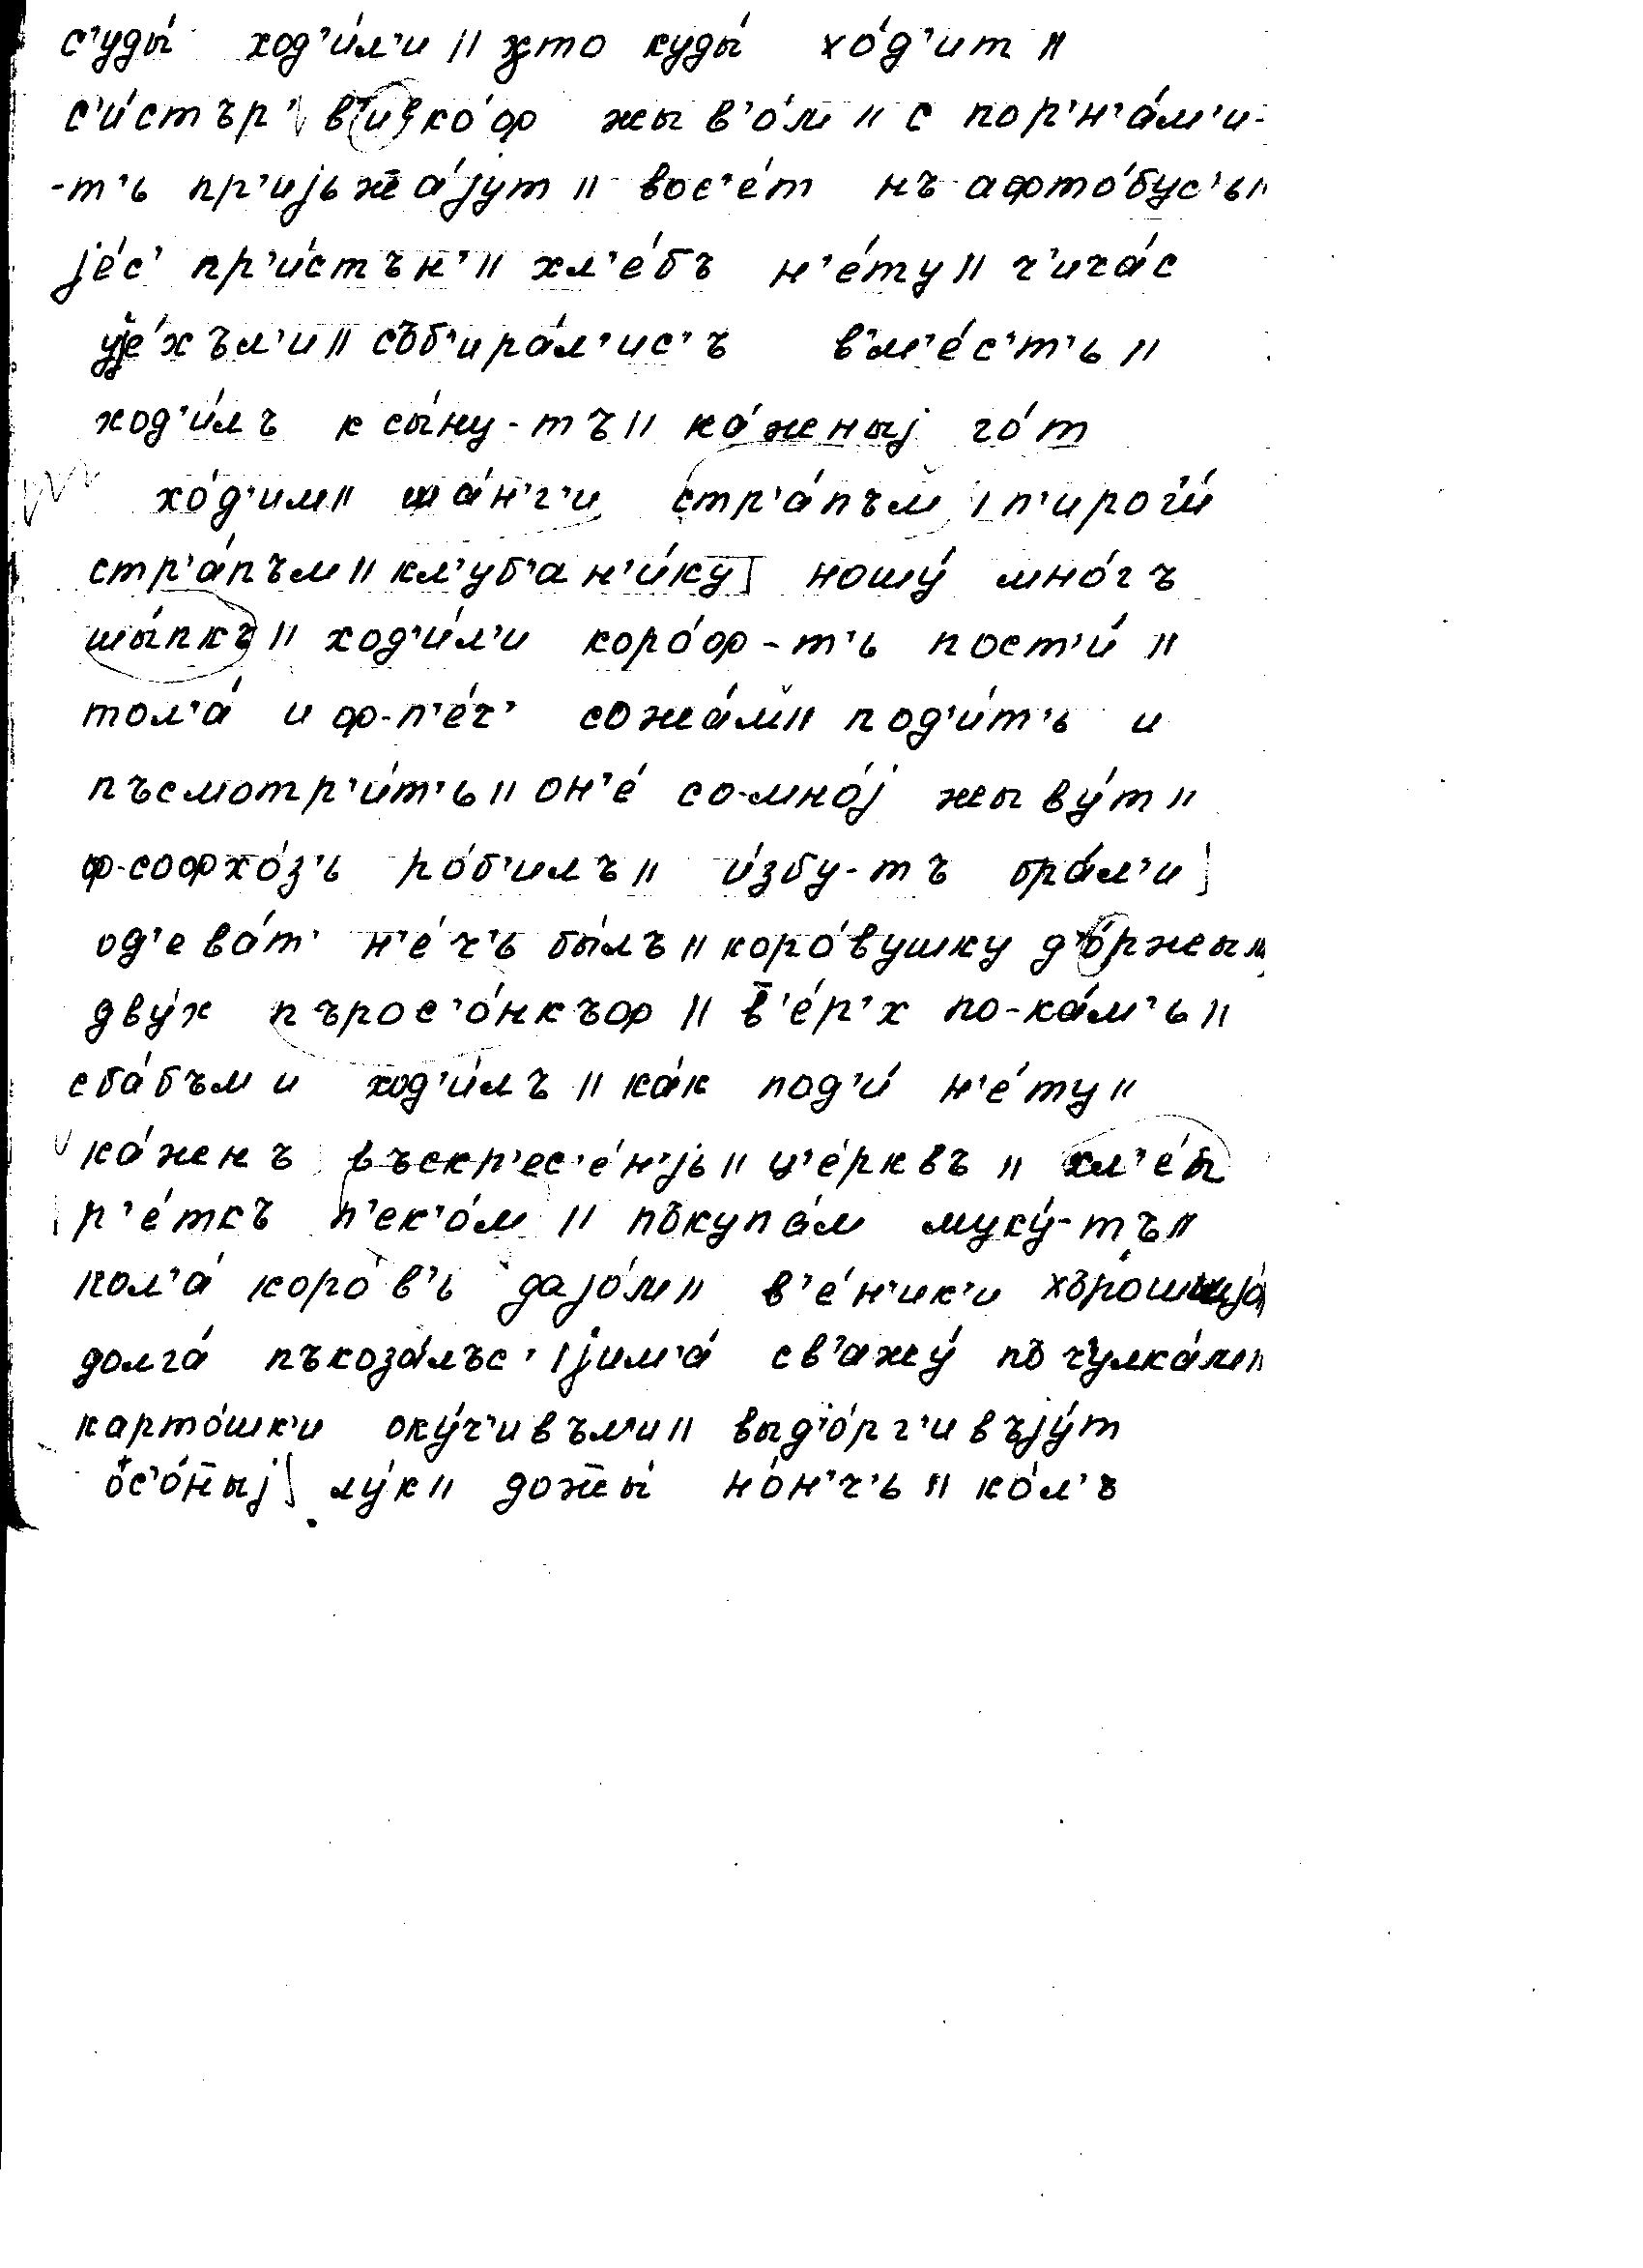 с'уды́ ход'и́л'и || хто куды́ хо́д'ит ||
с'и́стър' жыв'о́м || с пор'н'а́м'и-
-т'ь пр'иjьж̄а́jут || вос'е́т нъ афто́бус'ь ||
jе́с' пр'и́стън' || хл'е́бъ н'е́ту || ч'ича́с
уjе́хъл'и || съб'ира́л'ис'ъ вм'е́с'т'ь ||
ход'и́лъ к сы́ну-тъ || ка́жныj го́т
хо́д'им || ша́н'г'и стр'а́пъм | п'ироги́
стр'а́пъм || кл'уб'ан'и́ку ношу́ мно́гъ
шы́пкъ || ход'и́л'и коро́ф-т'ь пост'и́ ||
тол'а́ и ф-п'е́ч' сожа́м || под'и́т'ь и
пъсмотр'и́т'ь || он'е́ со-мно́j жыву́т ||
ф-софхо́з'ь ро́б'илъ || и́збу-тъ бра́л'и
од'ева́т' н'е́ч'ь бы́лъ || коро́вушку д'о́ржым
дву́х пърос'о́нкъф || в̄'е́р'х по-ка́м'ь ||
сба́бъми ход'и́лъ || ка́к под'и́ н'е́ту ||
ка́женъ въскр'ес'е́н'jь || ц'е́рквъ || хл'е́б
р'е́ткъ п'ек'о́м || пъкупа́м муку́-тъ ||
пол'а́ коро́в'ь даjо́м || в'е́н'ик'и
долга́ пъкоза́лъс' | jим'а́ св'ажу́ пъ чулка́м ||
карто́шк'и оку́ч'ивъл'и || выд'о́рг'ивъjу́т
ос'о́н̄ыj лу́к || дож̄ы́ но́н'ч'ь || ко́л'ъ